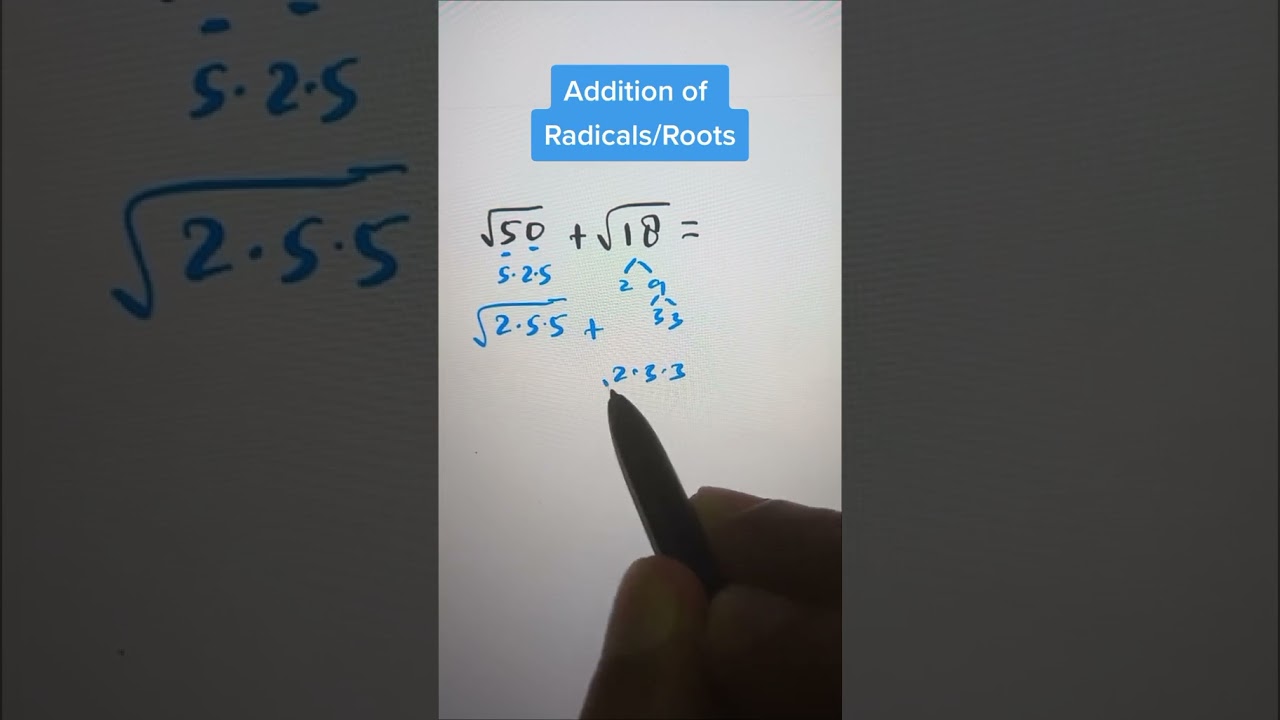 Addition of
Radicals/Roots
√50 + √18 =
5·2·5
2 9
3 3
√2·5·5 +
2·3·3
5·2·5
√2·5·5